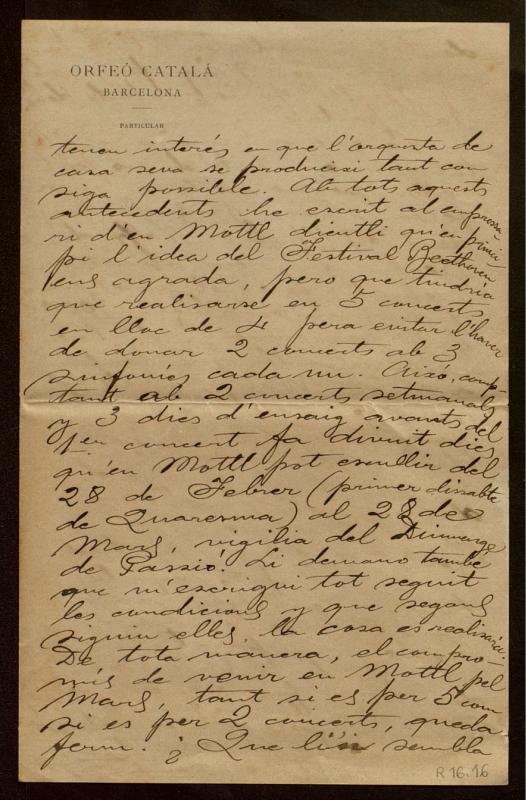 ORFEÓ CATALÁ
BARCELONA
PARTICULAR
tenen interés en que l'orquesta de
casa seva se produeixi tant com
siga possible. Ab tots aquests
antecedents he escrit al empressa-
ri d'en Mottl dientli qu'en princi-
pi l'idea del Festival Beethoven
ens agrada, pero que tindria
que realisarse en 5 concerts
en lloc de 4 pera evitar l'haver
de donar 2 concerts ab 3
sinfonies cada un. Aixó, comp-
tant ab 2 concerts setmanals
y 3 dies d'ensaig avants del
1er concert fa divuit dies
qu'en Mottl pot escullir del
28 de Febrer (primer dissabte
de Quaresma) al 28 de
Mars, vigilia del Diumenge
de Passió. Li demano també
que m'escrigui tot seguit
les condicions y que segons
siguin elles, la cosa es realisará.
De tota manera, el compro-
mis de venir en Mottl pel
Mars, tant si es per 5 com
si es per 2 concerts, queda
ferm. ¿Que li'n sembla
R 16.16